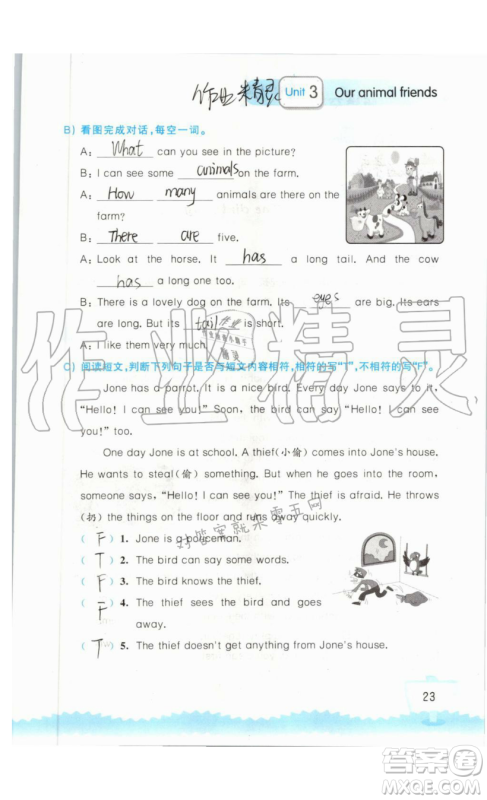 作业精灵 Unit 3 Our animal friends
B) 看图完成对话,每空一词。
A: What can you see in the picture?
B: I can see some animals on the farm.
A: How many animals are there on the
farm?
B: There are five.
A: Look at the horse. It has a long tail. And the cow
has a long one too.
B: There is a lovely dog on the farm. Its eyes are big. Its ears
are long. But its tail is short.
A: I like them very much.
C) 阅读短文,判断下列句子是否与短文内容相符,相符的写“T”,不相符的写“F”。
Jone has a parrot. It is a nice bird. Every day Jone says to it,
“Hello! I can see you!” Soon, the bird can say “Hello! I can see
you!” too.
One day Jone is at school. A thief(小偷) comes into Jone's house.
He wants to steal(偷) something. But when he goes into the room,
someone says, “Hello! I can see you!” The thief is afraid. He throws
(扔) the things on the floor and runs away quickly.
好答案就来零五网
( F ) 1. Jone is a policeman.
( T ) 2. The bird can say some words.
( F ) 3. The bird knows the thief.
( F ) 4. The thief sees the bird and goes
away.
( T ) 5. The thief doesn't get anything from Jone's house.
23
作业精灵
答案圈
MXQE.COM